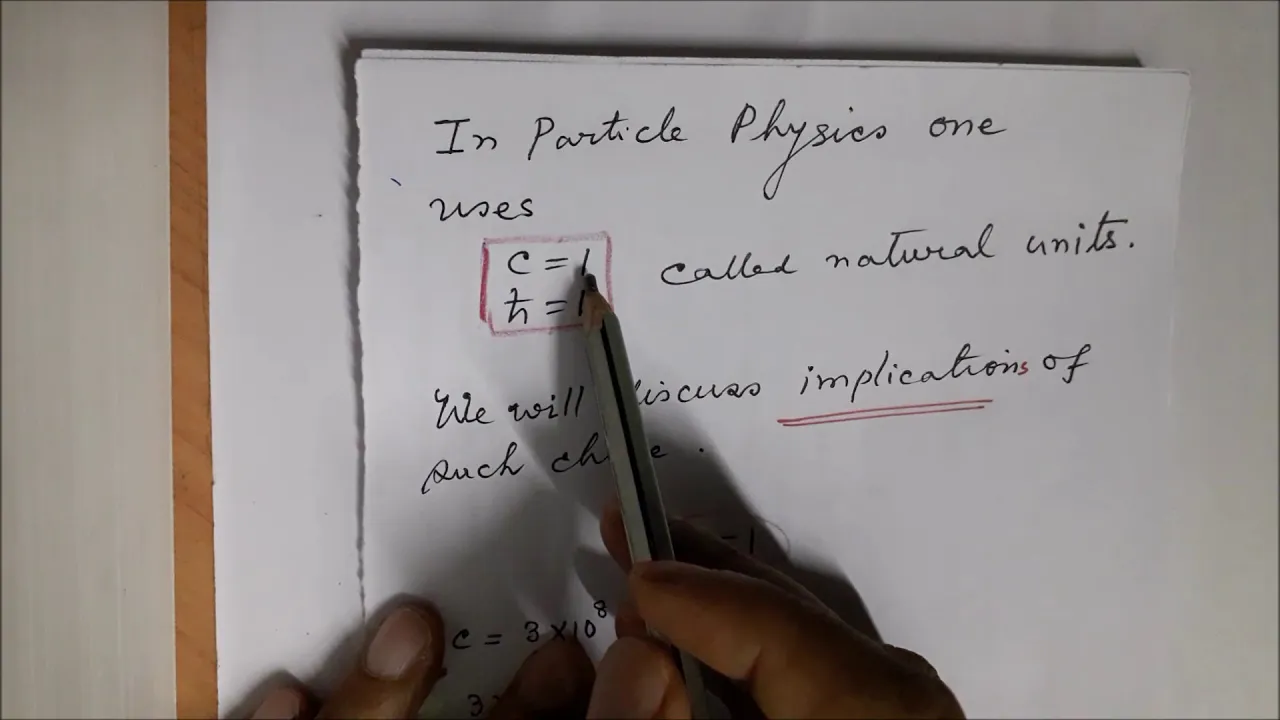 In Particle Physics one
uses
c = 1 called natural units.
ħ = 1
We will discuss implications of
such
= 1
c = 3 × 10⁸
3